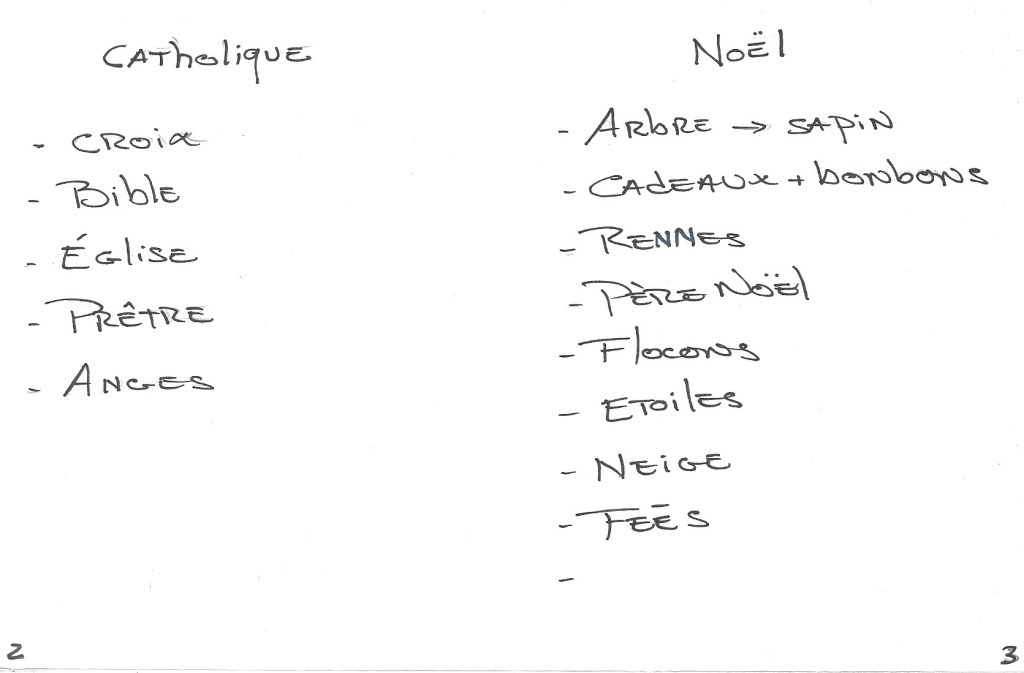 Catholique
- Croix
- Bible
- Église
- Prêtre
- Anges
2
Noël
- Arbre → sapin
- Cadeaux + bonbons
- Rennes
- Père Noël
- Flocons
- Etoiles
- Neige
- Feēs
-
3